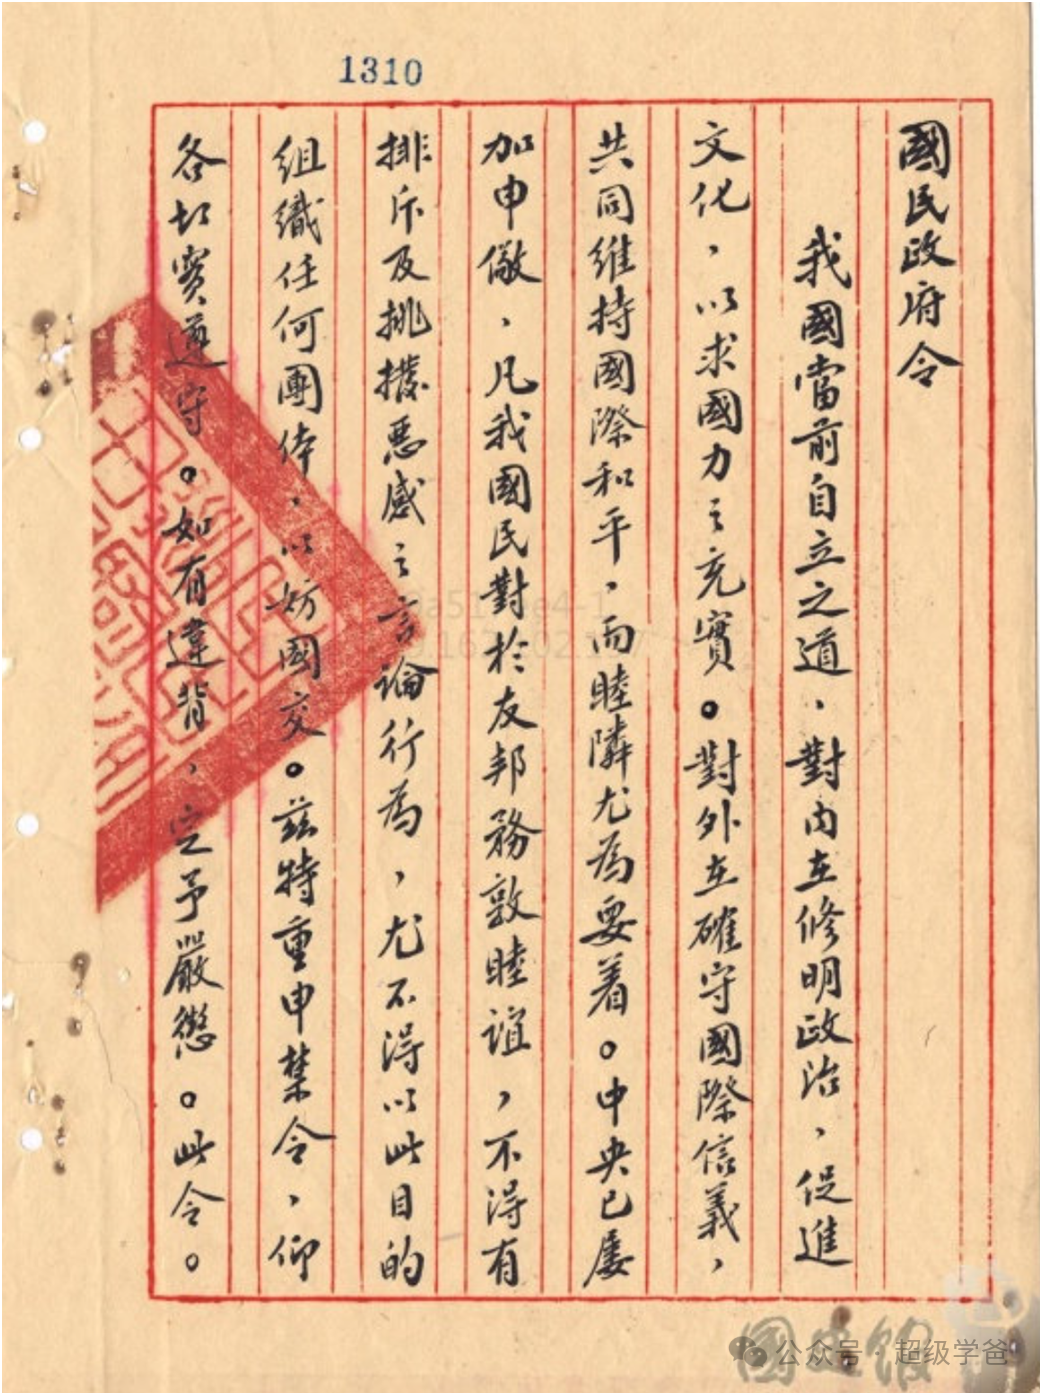 1310
國民政府令
我國當前自立之道、對內在修明政治、促進
文化、以求國力之充實。對外在確守國際信義、
共同維持國際和平、而睦隣尤為要着。中央已屢
加申儆、凡我國民對於友邦務敦睦誼、不得有
排斥及挑撥惡感之言論行為、尤不得以此目的
組織任何團体、以妨國交。茲特重申禁令、仰
各切實遵守。如有違背、定予嚴懲。此令。
國史館
公众号·超级学爸